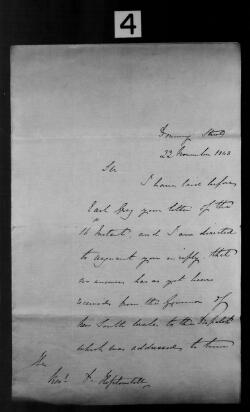 4
Downing Street
22 November 1848
Sir
I have laid before
Earl Grey your letter of the
16 Instant, and I am directed
to acquaint you in reply that
no answer has as yet been
received from the Governor of
New South Wales to the Despatch
which was addressed to him
The
Hon<sup>ble</sup>